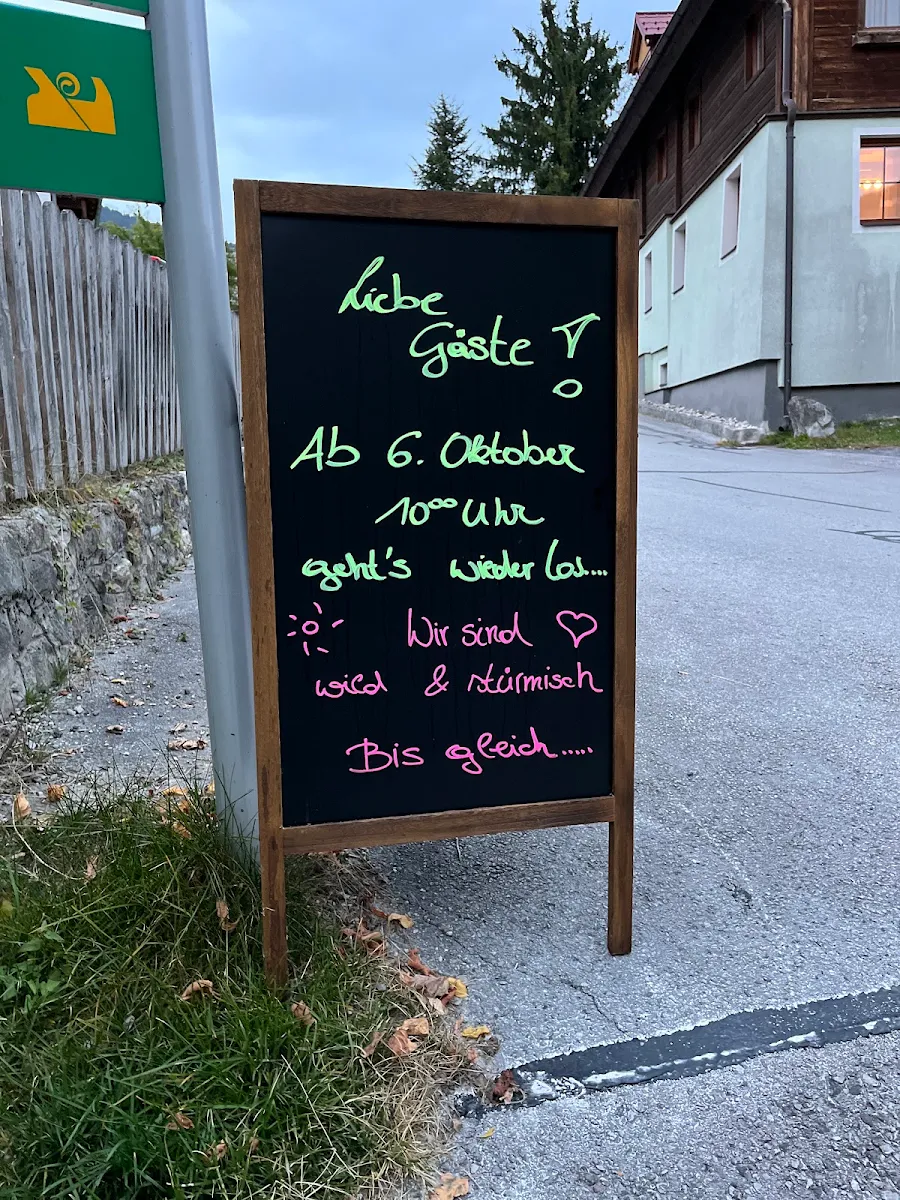 Liebe
Gäste!
Ab 6. Oktober
10⁰⁰ Uhr
geht's wieder los....
Wir sind
wild & stürmisch
Bis gleich.....